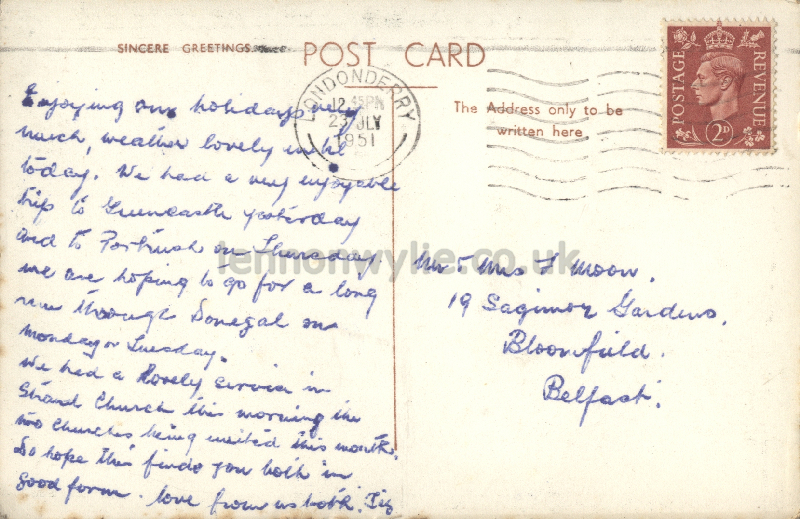 SINCERE GREETINGS
POST CARD
LONDONDERRY
12.45PM
JLY
1951
POSTAGE
REVENUE
2D
The Address only to be
written here
Enjoying our holidays very
much, weather lovely until
today. We had a very enjoyable
trip to Greencastle yesterday
and to Portrush on Thursday
we are hoping to go for a long
run through Donegal on
Monday or Tuesday.
We had a lovely service in
Strand Church this morning the
two churches being united this month.
Do hope this finds you both in
good form. love from us both.
Mr & Mrs F Moon.
19 Sagimor Gardens,
Bloomfield.
Belfast.
lennonwylie.co.uk